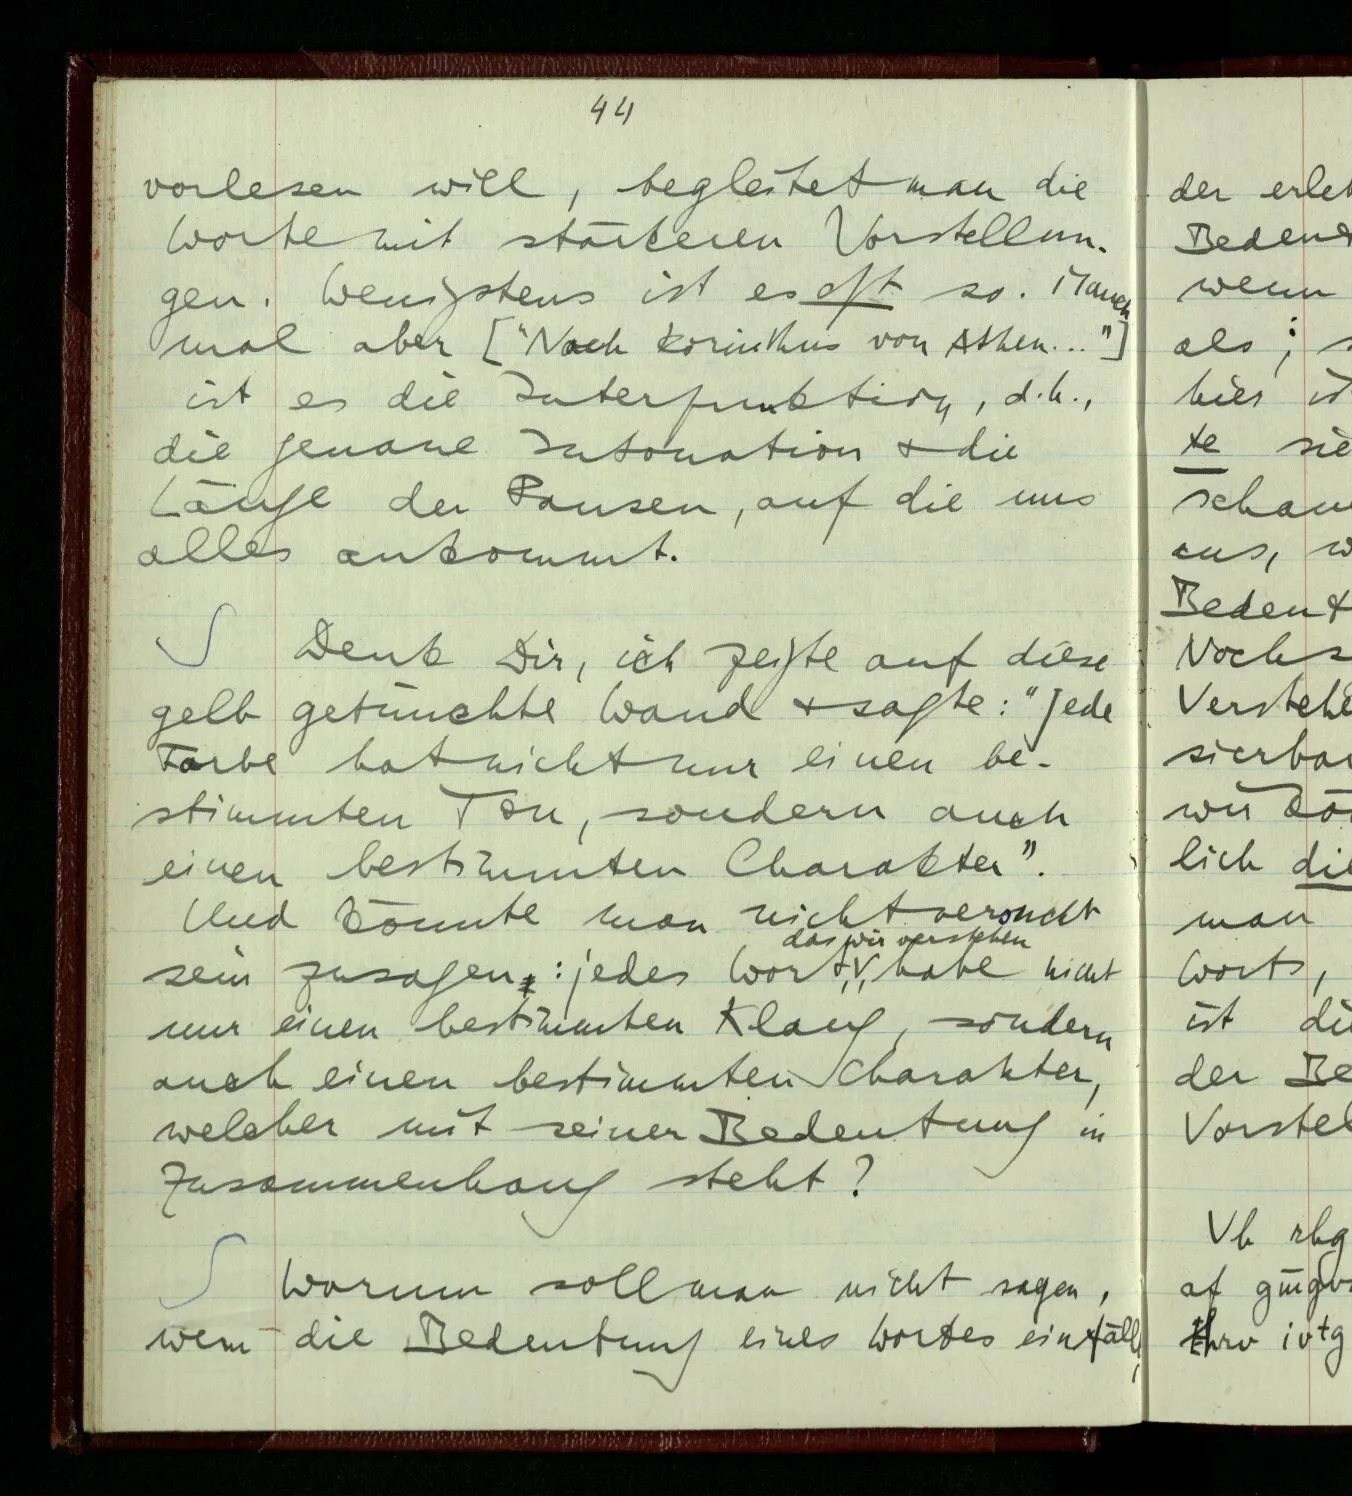 44
vorlesen will, begleitet man die
Worte mit stärkeren Vorstellun-
gen. Wenigstens ist es oft so. Manch
mal aber ["Nach Korinthus von Athen..."]
ist es die Interpunktion, d.h.,
die genaue Intonation & die
Länge der Pausen, auf die uns
alles ankommt.
∫ Denk Dir, ich zeigte auf diese
gelb getünchte Wand & sagte: "Jede
Farbe hat nicht nur einen be-
stimmten Ton, sondern auch
einen bestimmten Charakter".
Und könnte man nicht versucht
das wir verstehen
sein zu sagen: jedes Wort, habe nicht
nur einen bestimmten Klang, sondern
auch einen bestimmten Charakter,
welcher mit seiner Bedeutung in
Zusammenhang steht?
∫ Warum soll man nicht sagen,
wem die Bedeutung eines Wortes einfällt,
der
Bedeut
wenn
als ;
hier
te sie
schau
aus, w
Bedeut
Versteh
sierbar
wir kö
lich die
man
Worts,
ist di
der Be
Vorstel
Vh rhg
af
ivtg